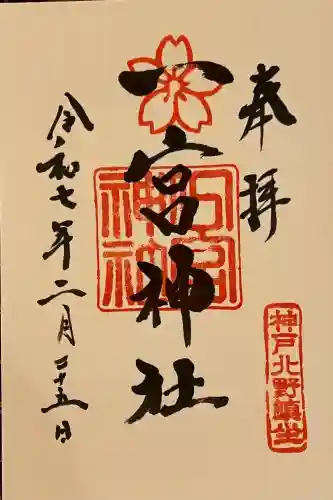 奉拝
一宮神社
令和七年二月二十五日
神戸北野鎮坐